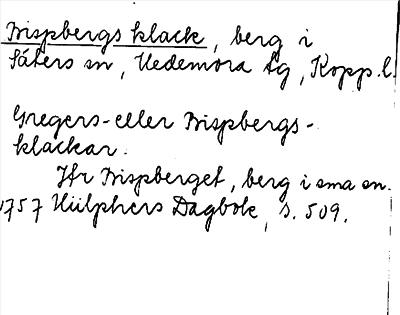 Bispbergs klack, berg i
Säters sn, Hedemora tg, Kopp.l.
Gregers- eller Bispbergs-
klackar.
Jfr Bispberget, berg i sma sn.
1757 Hülphers Dagbok, s. 509.